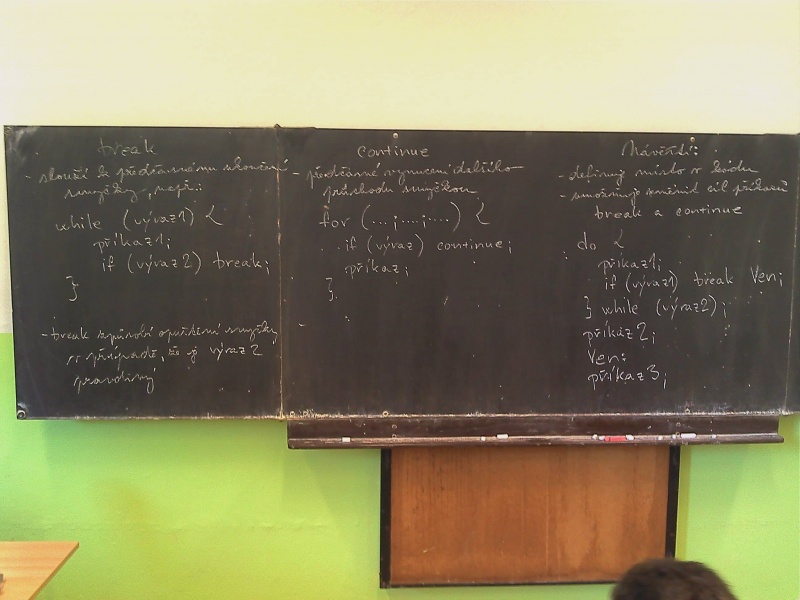 break
- slouží k předčasnému ukončení
smyčky, např.:
while (výraz1) {
příkaz1;
if (výraz2) break;
}
- break způsobí opuštění smyčky
v případě, že je výraz2
pravdivý
continue
- předčasné vynucení dalšího
průchodu smyčkou
for (...;...;...) {
if (výraz) continue;
příkaz;
}
Návěští:
- definuje místo v kódu
- umožňuje změnit cíl příkazů
break a continue
do {
příkaz1;
if (výraz1) break Ven;
} while (výraz2);
příkaz2;
Ven:
příkaz3;